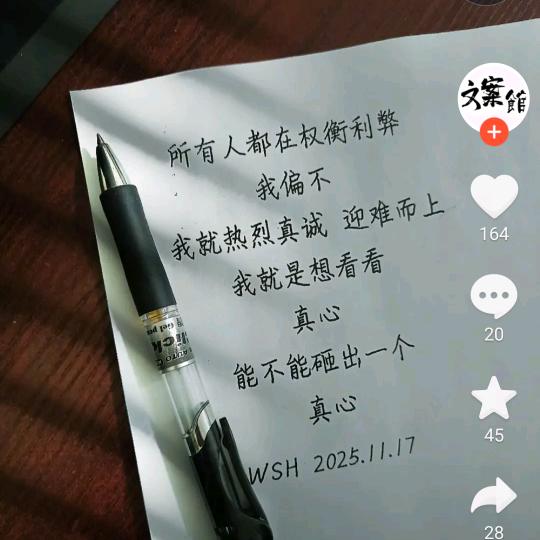 所有人都在权衡利弊
我偏不
我就热烈真诚 迎难而上
我就是想看看
真心
能不能砸出一个
真心
WSH 2025.11.17
文案館
164
20
45
28